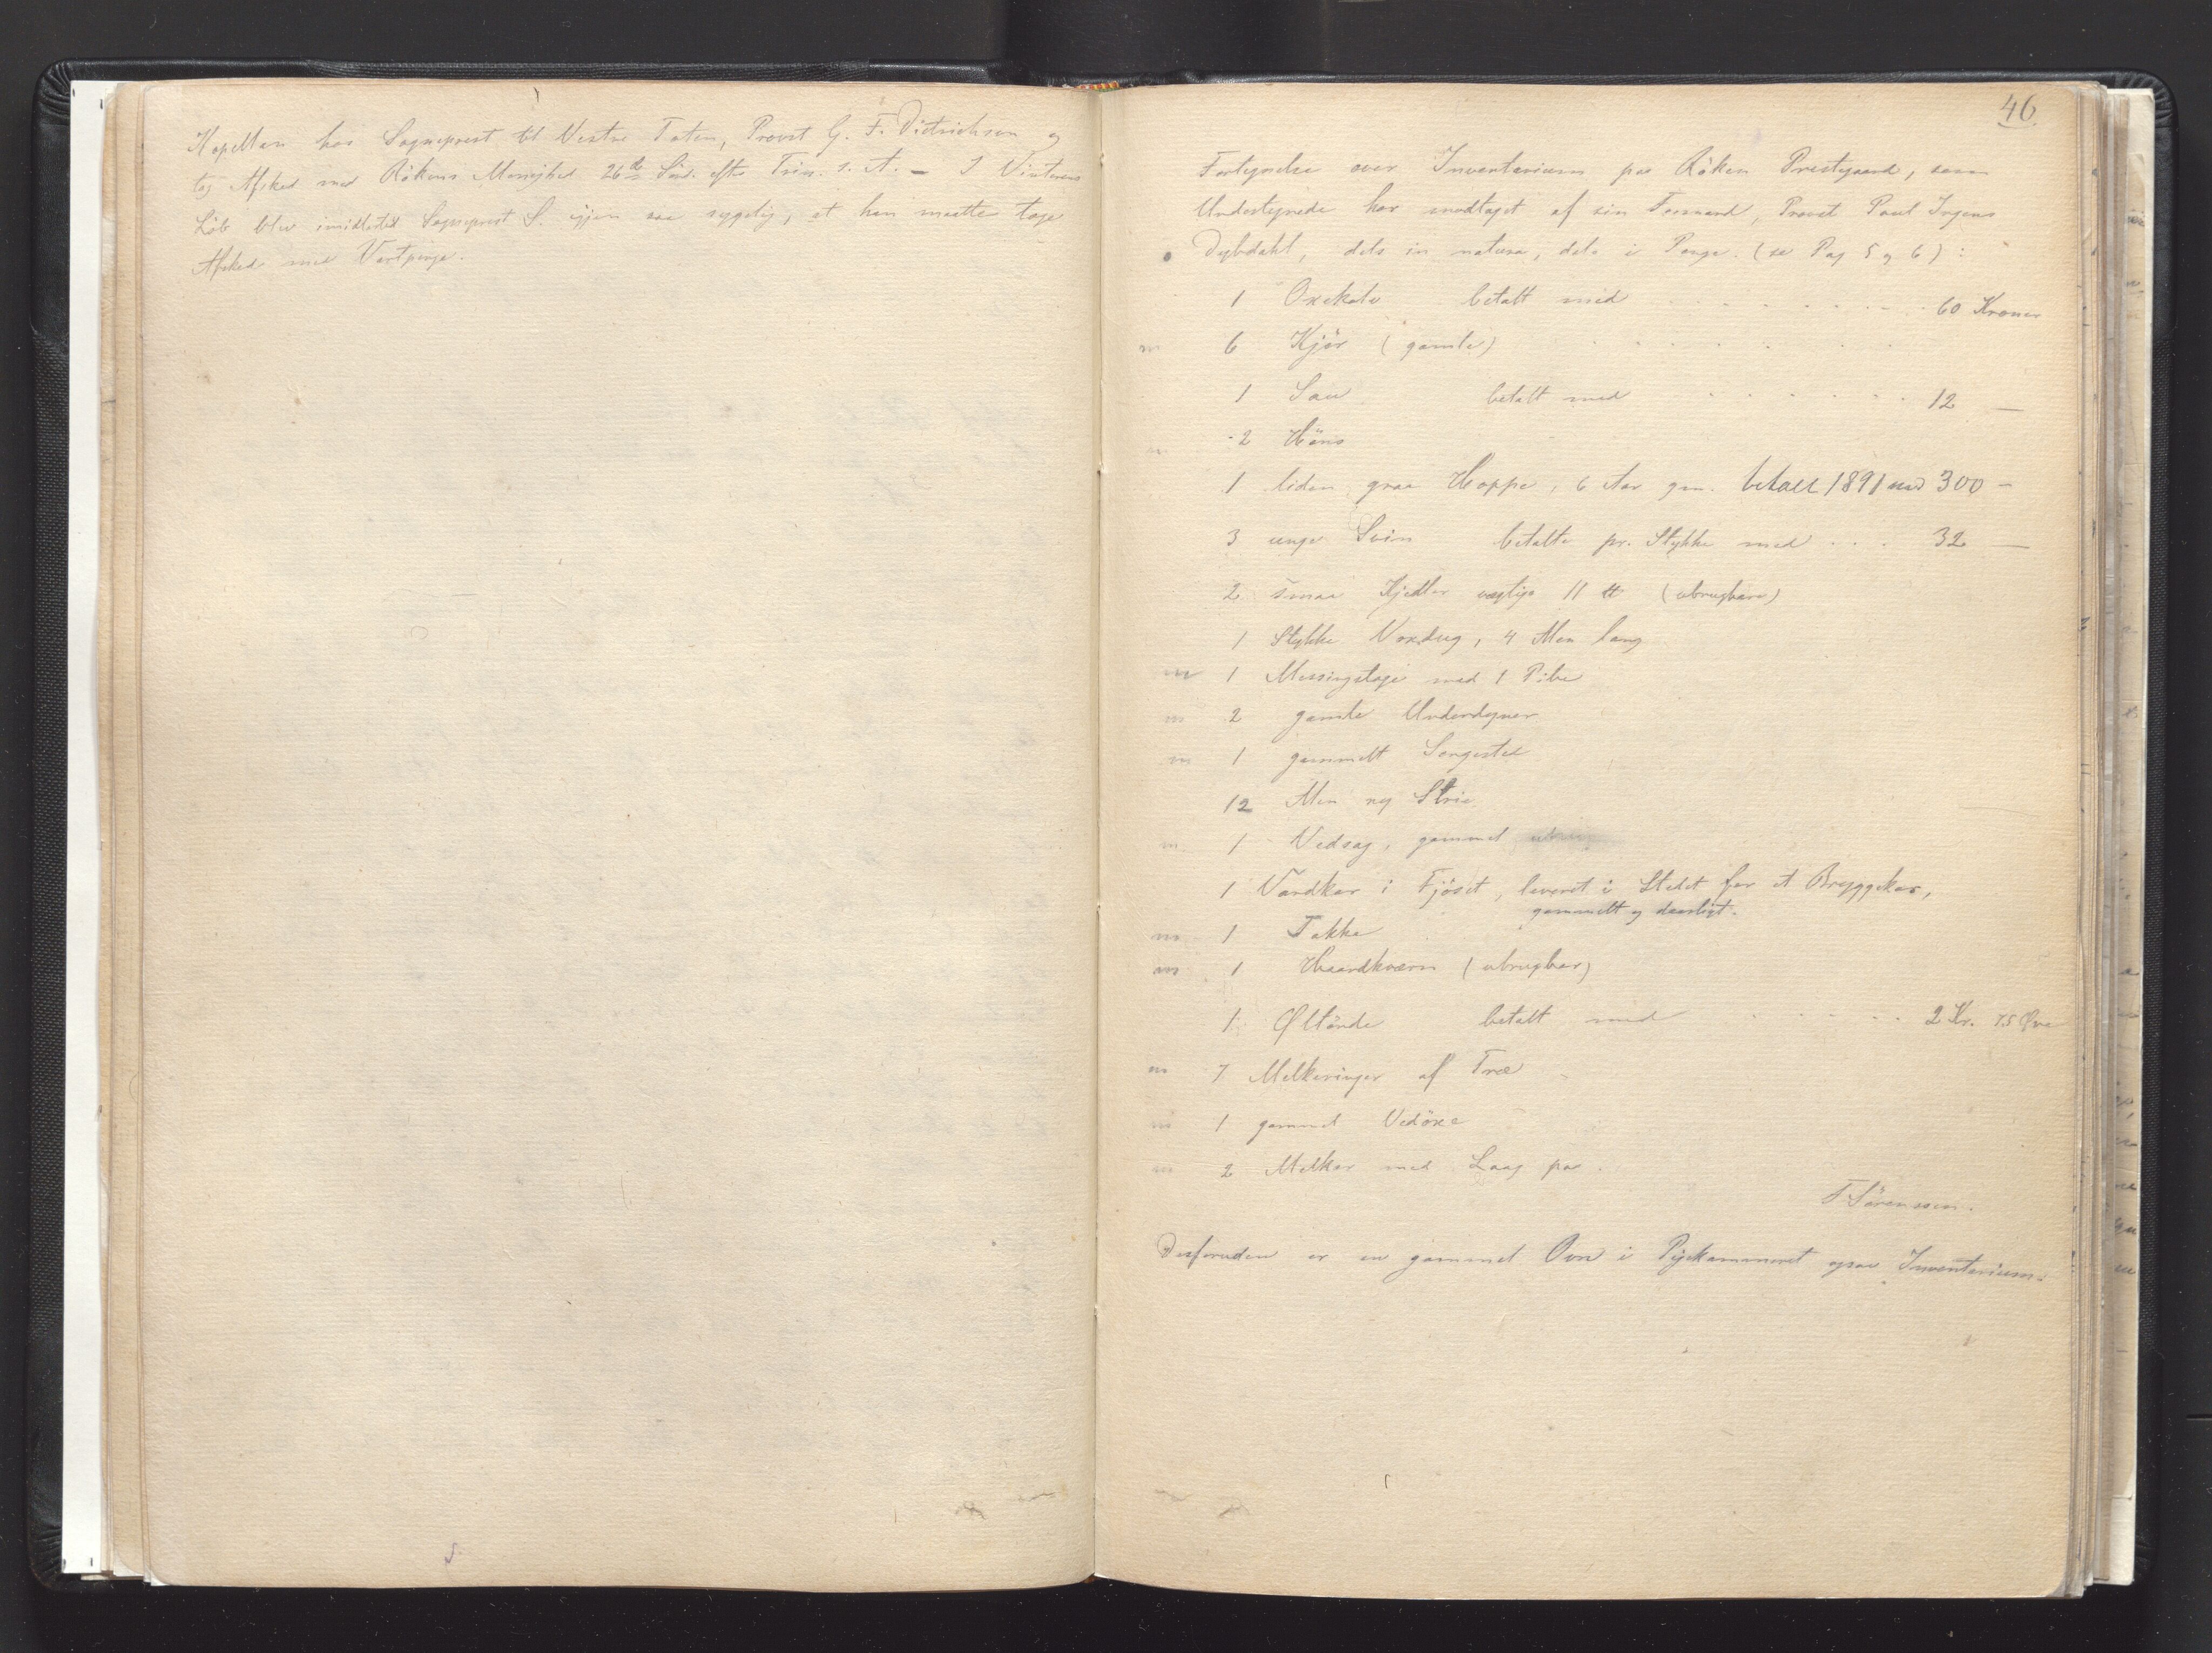 Kapellan hos Sogneprest til Vestre Toten, Provst G. F. Dietrichson og
tog Afsked med Rökens Menighed 26de Sönd. efter Trin. s. A. – I Vinterens
Löb blev imidlertid Sogneprest S. igjen saa sygelig, at han maatte tage
Afsked med Vartpenge.
46
Fortegnelse over Inventarium paa Röken Prestegaard, som
Undertegnede har modtaget af sin Formand, Provst Paul Irgens
Dybdahl, dels in natura, dels i Penge. (se Pag 5 og 6) :
1 Oxekalv betalt med . . . . . . . . 60 Kroner
6 Kjör (gamle) . . . . . . . .
1 Sau betalt med . . . . . . . 12 —
2 Höns
1 liden graa Hoppe, 6 Aar gm. betalt 1891 med 300 –
3 unge Svin betalte pr. Stykke med . . . 32 —
2 smaa Kjedler vægtige 11 ℔ (ubrugbare)
1 Stykke Voxdug, 4 Alen lang
1 Messingstage med 1 Pibe
2 gamle Underdyner
1 gammelt Sengested
12 Alen ny Strie
1 Vedsag, gammel
1 Vandkar i Fjöset, leveret i Stedet for et Bryggekar,
gammelt og daarligt.
1 Takke
1 Haandkværn (ubrugbar)
1 Øltönde betalt med . . . . . . 2 Kr. 75 Øre
7 Melkeringer af Træ
1 gammel Vedöxe
2 Melkar med Laag paa.
F. Sörenssen.
Desforuden er en gammel Ovn i Pigekammeret ogsaa Inventarium.